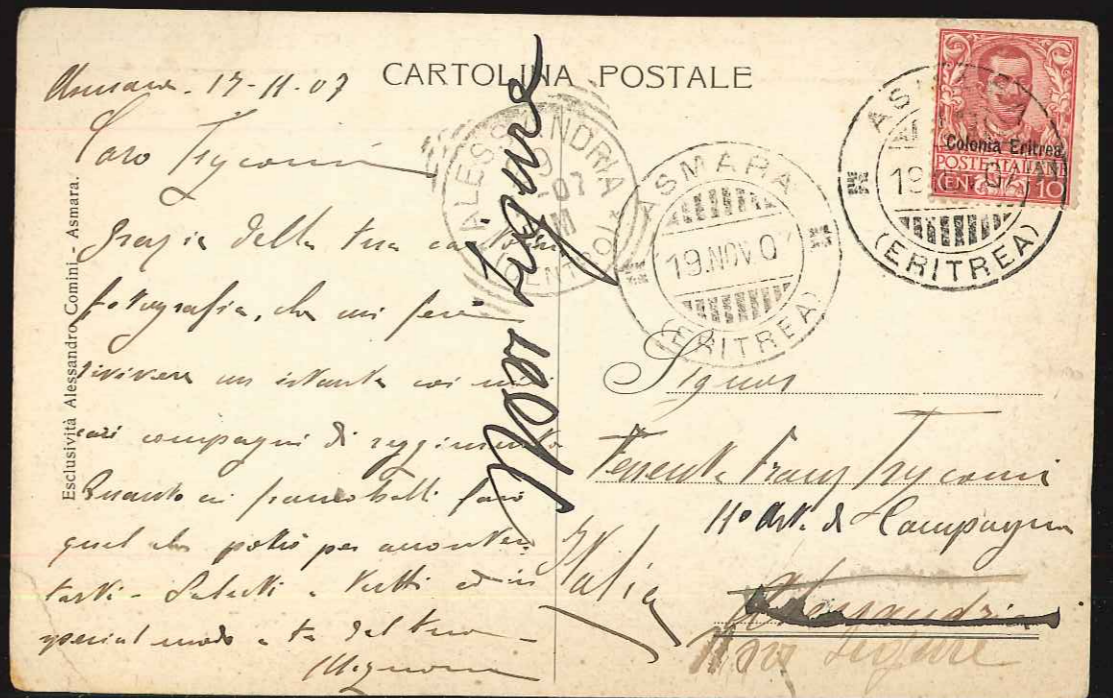 CARTOLINA POSTALE
Asmara. 17-11-07
Caro Trycomi
Grazie della tua cartolina
fotografia, che mi fece
rivivere un istante coi miei
cari compagni di reggimento
Quanto ai francobolli farò
quel che potrò per acconten
tarti - Saluti a tutti ed in
special modo a te dal tuo -
Esclusività Alessandro Comini - Asmara.
Novi Ligure
ALESSANDRIA
ASMARA
19. NOV 07
(ERITREA)
ASMARA
(ERITREA)
Colonia Eritrea
POSTE ITALIANE
CENT. 10
Signor
Tenente Franz Trycomi
11° Art. da Campagna
Italia
Alessandria
Novi Ligure